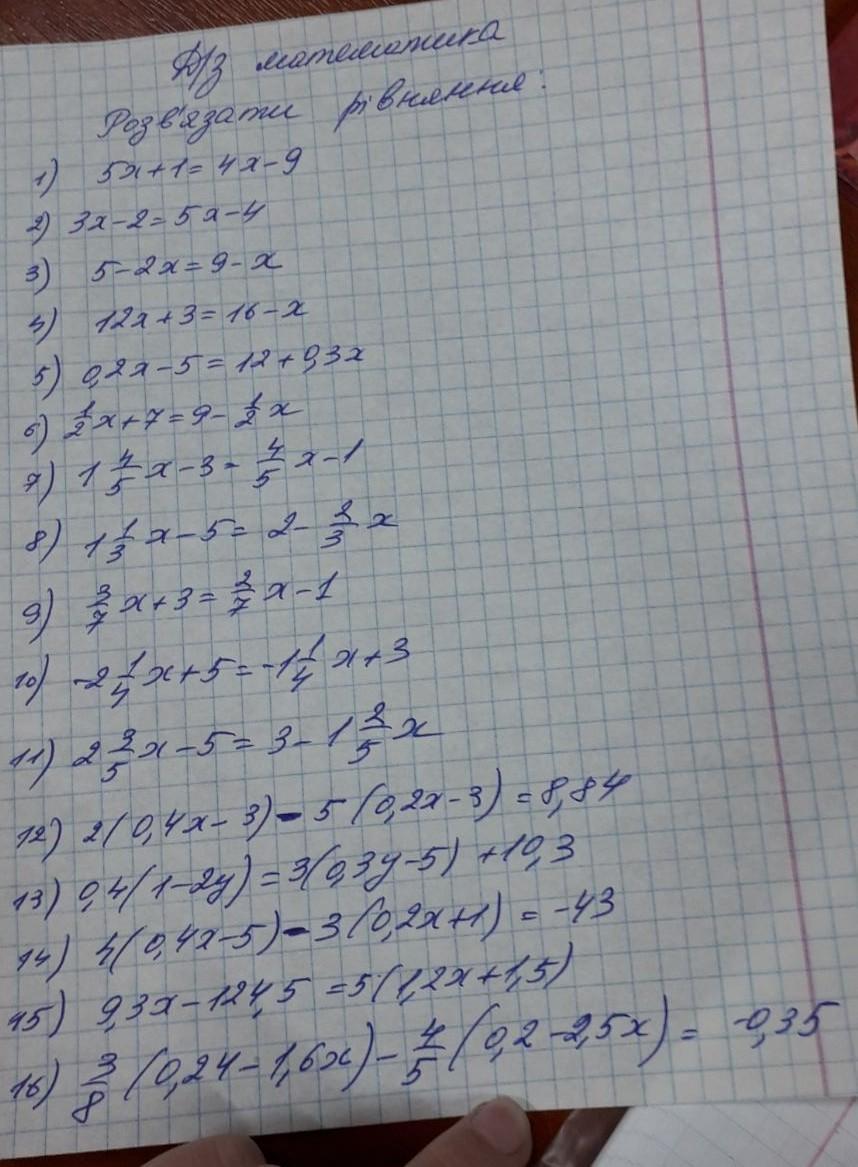 Д/з математика
Розв'язати рівняння:
1) 5x+1=4x-9
2) 3x-2=5x-4
3) 5-2x=9-x
4) 12x+3=16-x
5) 0,2x-5=12+0,3x
6) 1/2x+7=9-1/2x
7) 1 4/5x-3=4/5x-1
8) 1 1/3x-5=2-2/3x
9) 3/7x+3=2/7x-1
10) -2 1/4x+5=-1 1/4x+3
11) 2 3/5x-5=3-1 2/5x
12) 2(0,4x-3)-5(0,2x-3)=8,84
13) 0,4(1-2y)=3(0,3y-5)+10,3
14) 4(0,4x-5)-3(0,2x+1)=-43
15) 9,3x-124,5=5(1,2x+1,5)
16) 3/8(0,24-1,6x)-4/5(0,2-2,5x)=-0,35